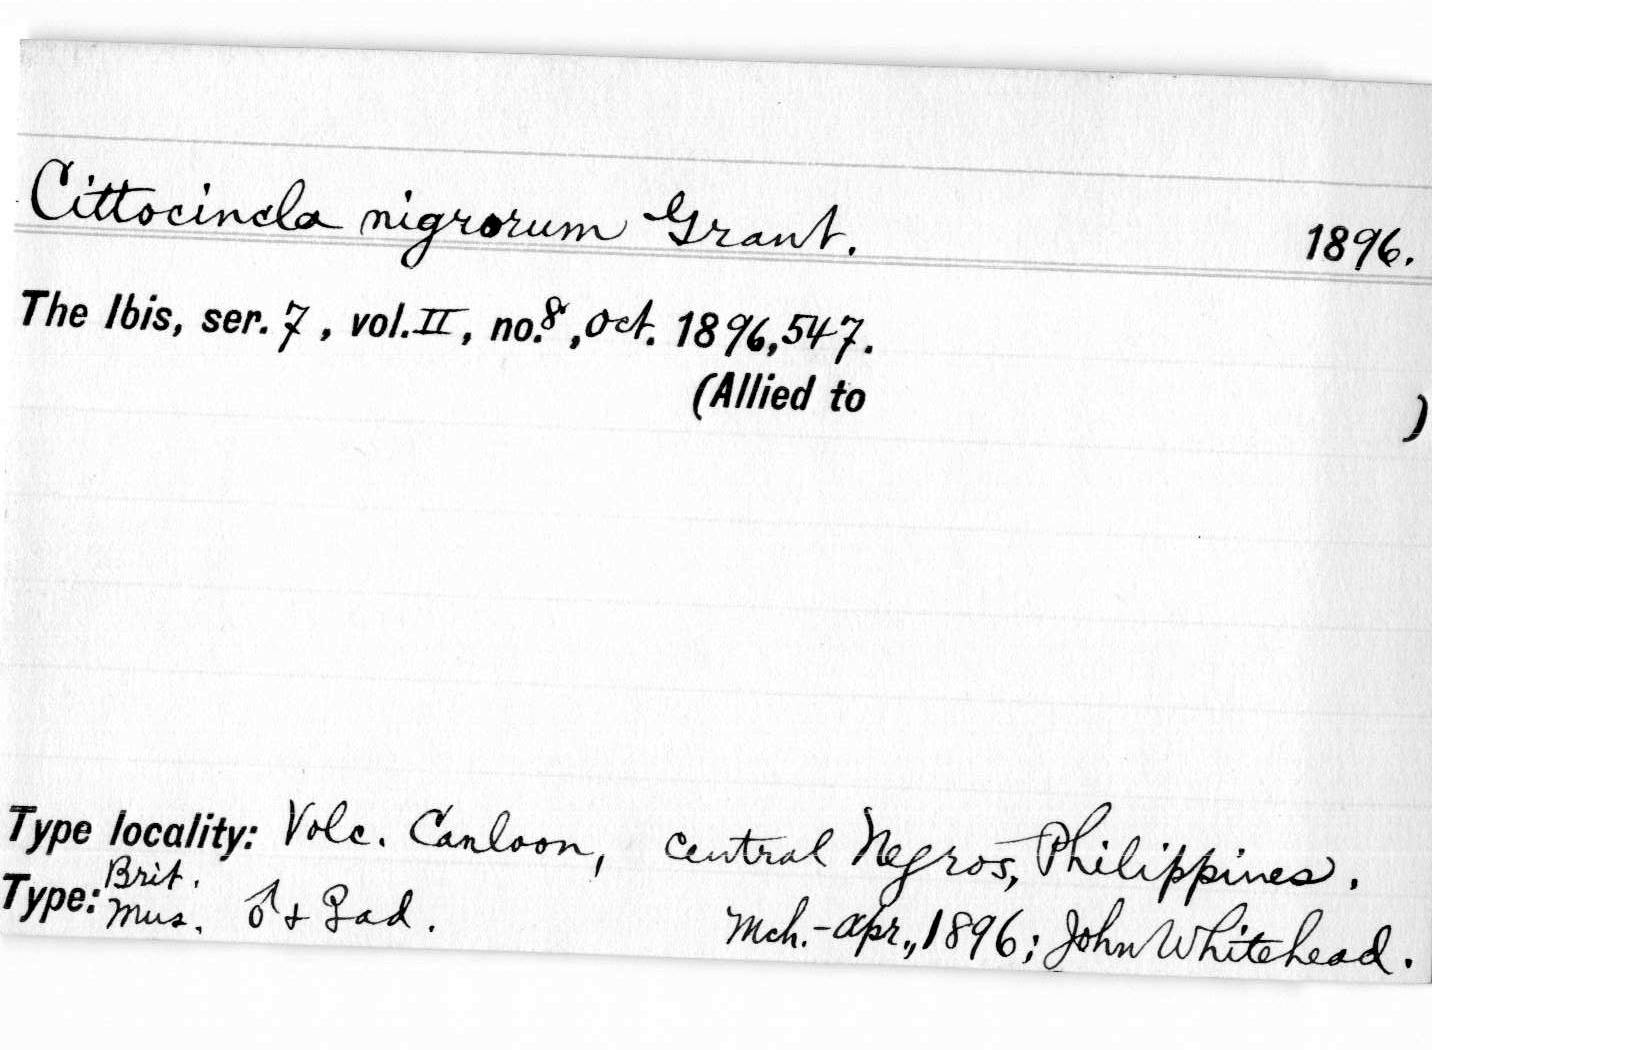 Cittocincla nigrorum Grant. 1896.
The Ibis, ser. 7, vol. II, no. 8, Oct. 1896, 547.
(Allied to )
Type locality: Volc. Canloon, central Negros, Philippines.
Type: Brit. Mus. ♂ + ♀ ad. Mch.-Apr., 1896; John Whitehead.